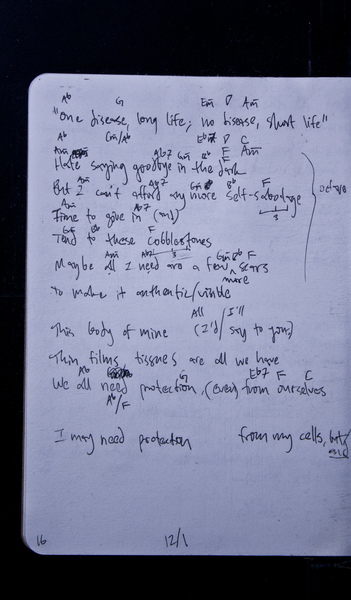 Ab G Em D Am
"One disease, long life; no disease, short life"
Ab Gm/Ab Eb7 D C
Am Ab7 Gm Bb F Am
Hate saying goodbye in the dark
Am Ab7 Gm Bb F
But I can't afford any more self-sabotage
octave
Am Ab7 1 3
Time to give in (and)
Gm Bb F
Tend to these cobblestones
Am Ab7 1 3 Gm Bb F
Maybe all I need are a few scars
more
to make it authentic/visible
All I'll
This body of mine (I'd/ say to you)
Thin films, tissues are all we have
Ab G Eb7 F C
We all need protection, (even) from ourselves
Ab/F
I may need protection from my cells, but/
and
16 12/1